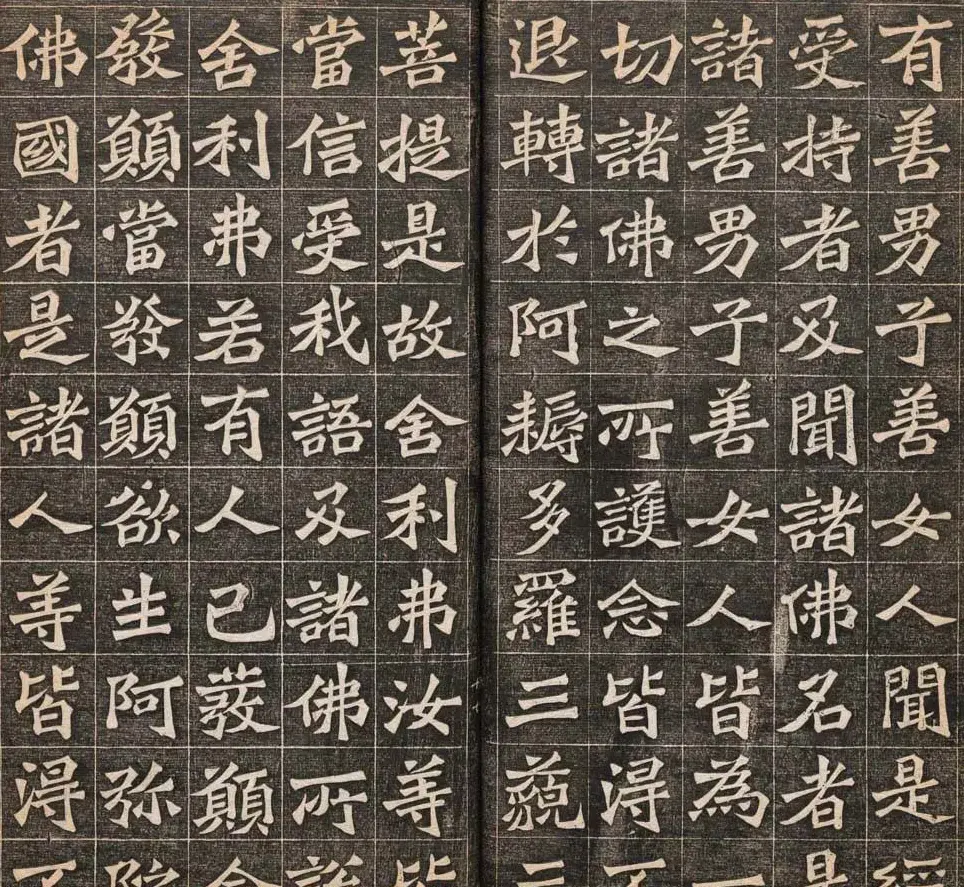 有善男子善女人聞是經
受持者及聞諸佛名者是
諸善男子善女人皆為一
切諸佛之所護念皆得不
退轉於阿耨多羅三藐三
菩提是故舍利弗汝等皆
當信受我語及諸佛所說
舍利弗若有人已發願今
發願當發願欲生阿弥陀
佛國者是諸人等皆得不